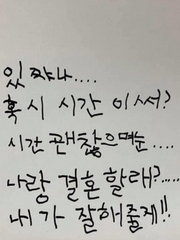 있쟈나....
혹시 시간 이써?
시간 괜찮으며눈....
나랑 결혼 할래?....
내가 잘해줄게!!